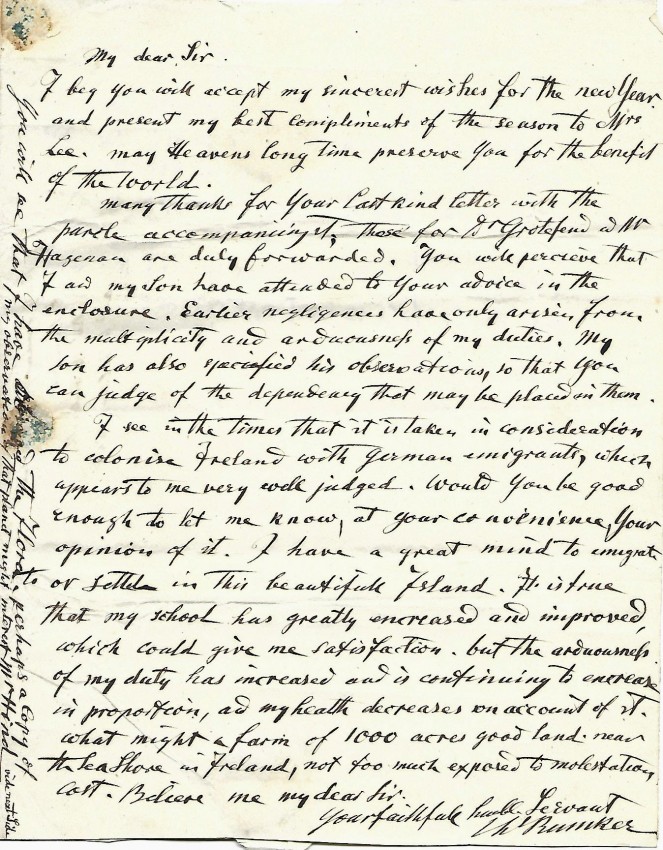 My dear Sir.
I beg you will accept my sincerest wishes for the new Year
and present my best compliments of the season to Mrs
Lee. may Heavens long time preserve You for the benefit
of the World.
many thanks for Your last kind letter with the
parcle accompanying it, those for Dr Grotefend & Mr
Hagenau are duly forwarded. You will percieve that
I and my son have attended to Your advice in the
enclosure. Earlier negligences have only arisen from
the multiplicity and arduousness of my duties. My
son has also specified his observations, so that You
can judge of the dependency that may be placed in them.
I see in the times that it is taken in consideration
to colonise Ireland with German emigrants, which
appears to me very well judged. Would You be good
enough to let me know, at your convenience, Your
opinion of it. I have a great mind to emigrate
or settle in this beautifull Island. It is true
that my school has greatly encreased and improved,
which could give me satisfaction. but the arduousness
of my duty has increased and is continuing to encrease
in proportion, and my health decreases on account of it.
what might a farm of 1000 acres good land near
the Sea Shore in Ireland, not too much exposed to molestation,
cost. Believe me my dear Sir.
Your faithfull humble Servant
Ch Rumker
You will see that I have the Flora, perhaps a Copy of
my observations of that planet might interest Mr Hind
vide next Side